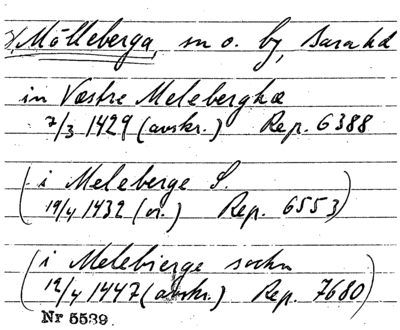 Mölleberga, sn o. by, Bara hd
in Væstre Meleberghæ
7/3 1429 (avskr.) Rep. 6388
(i Meleberge S.
19/4 1432 (or.) Rep. 6553)
(i Melebierge sochn
12/4 1447 (avskr.) Rep. 7680)
Nr 5539